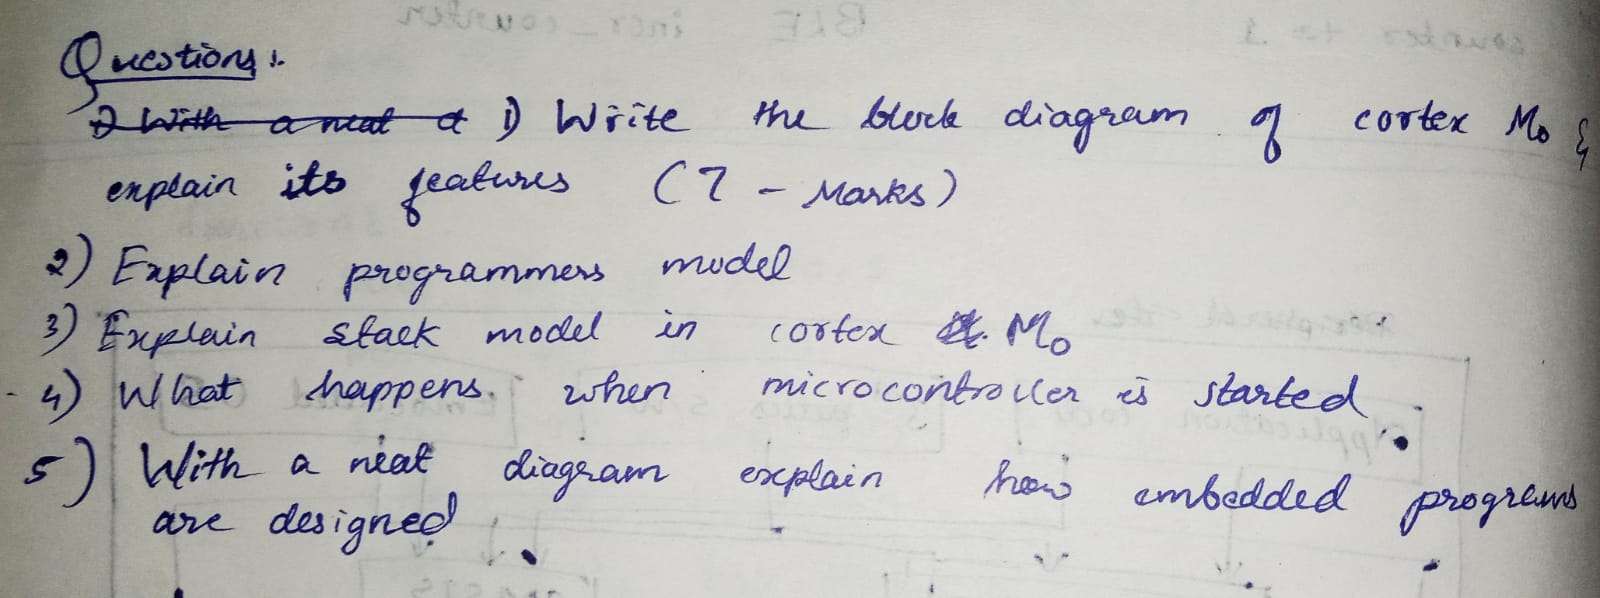 Questions :
1) With a neat d 1) Write the block diagram of cortex M0 &
explain its features (7 - Marks)
2) Explain programmers model
3) Explain stack model in cortex M0
4) What happens when microcontroller is started
5) With a neat diagram explain how embedded programs
are designed